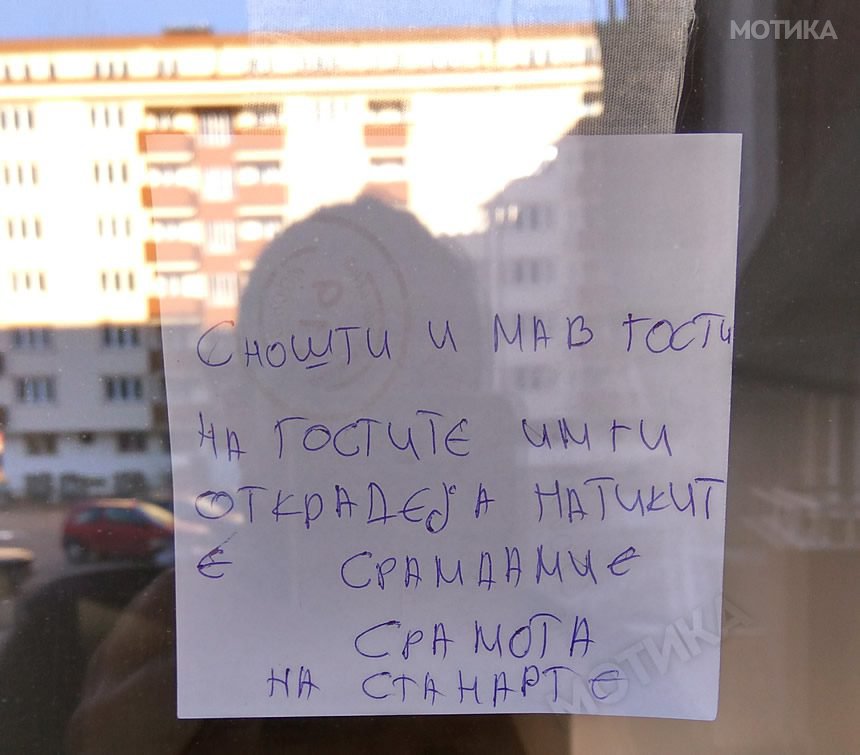 МОТИКА
Сношти и мав гости
на гостите им ги
открадеја натикит
е срамдамие
срамота
на станарте
МОТИКА